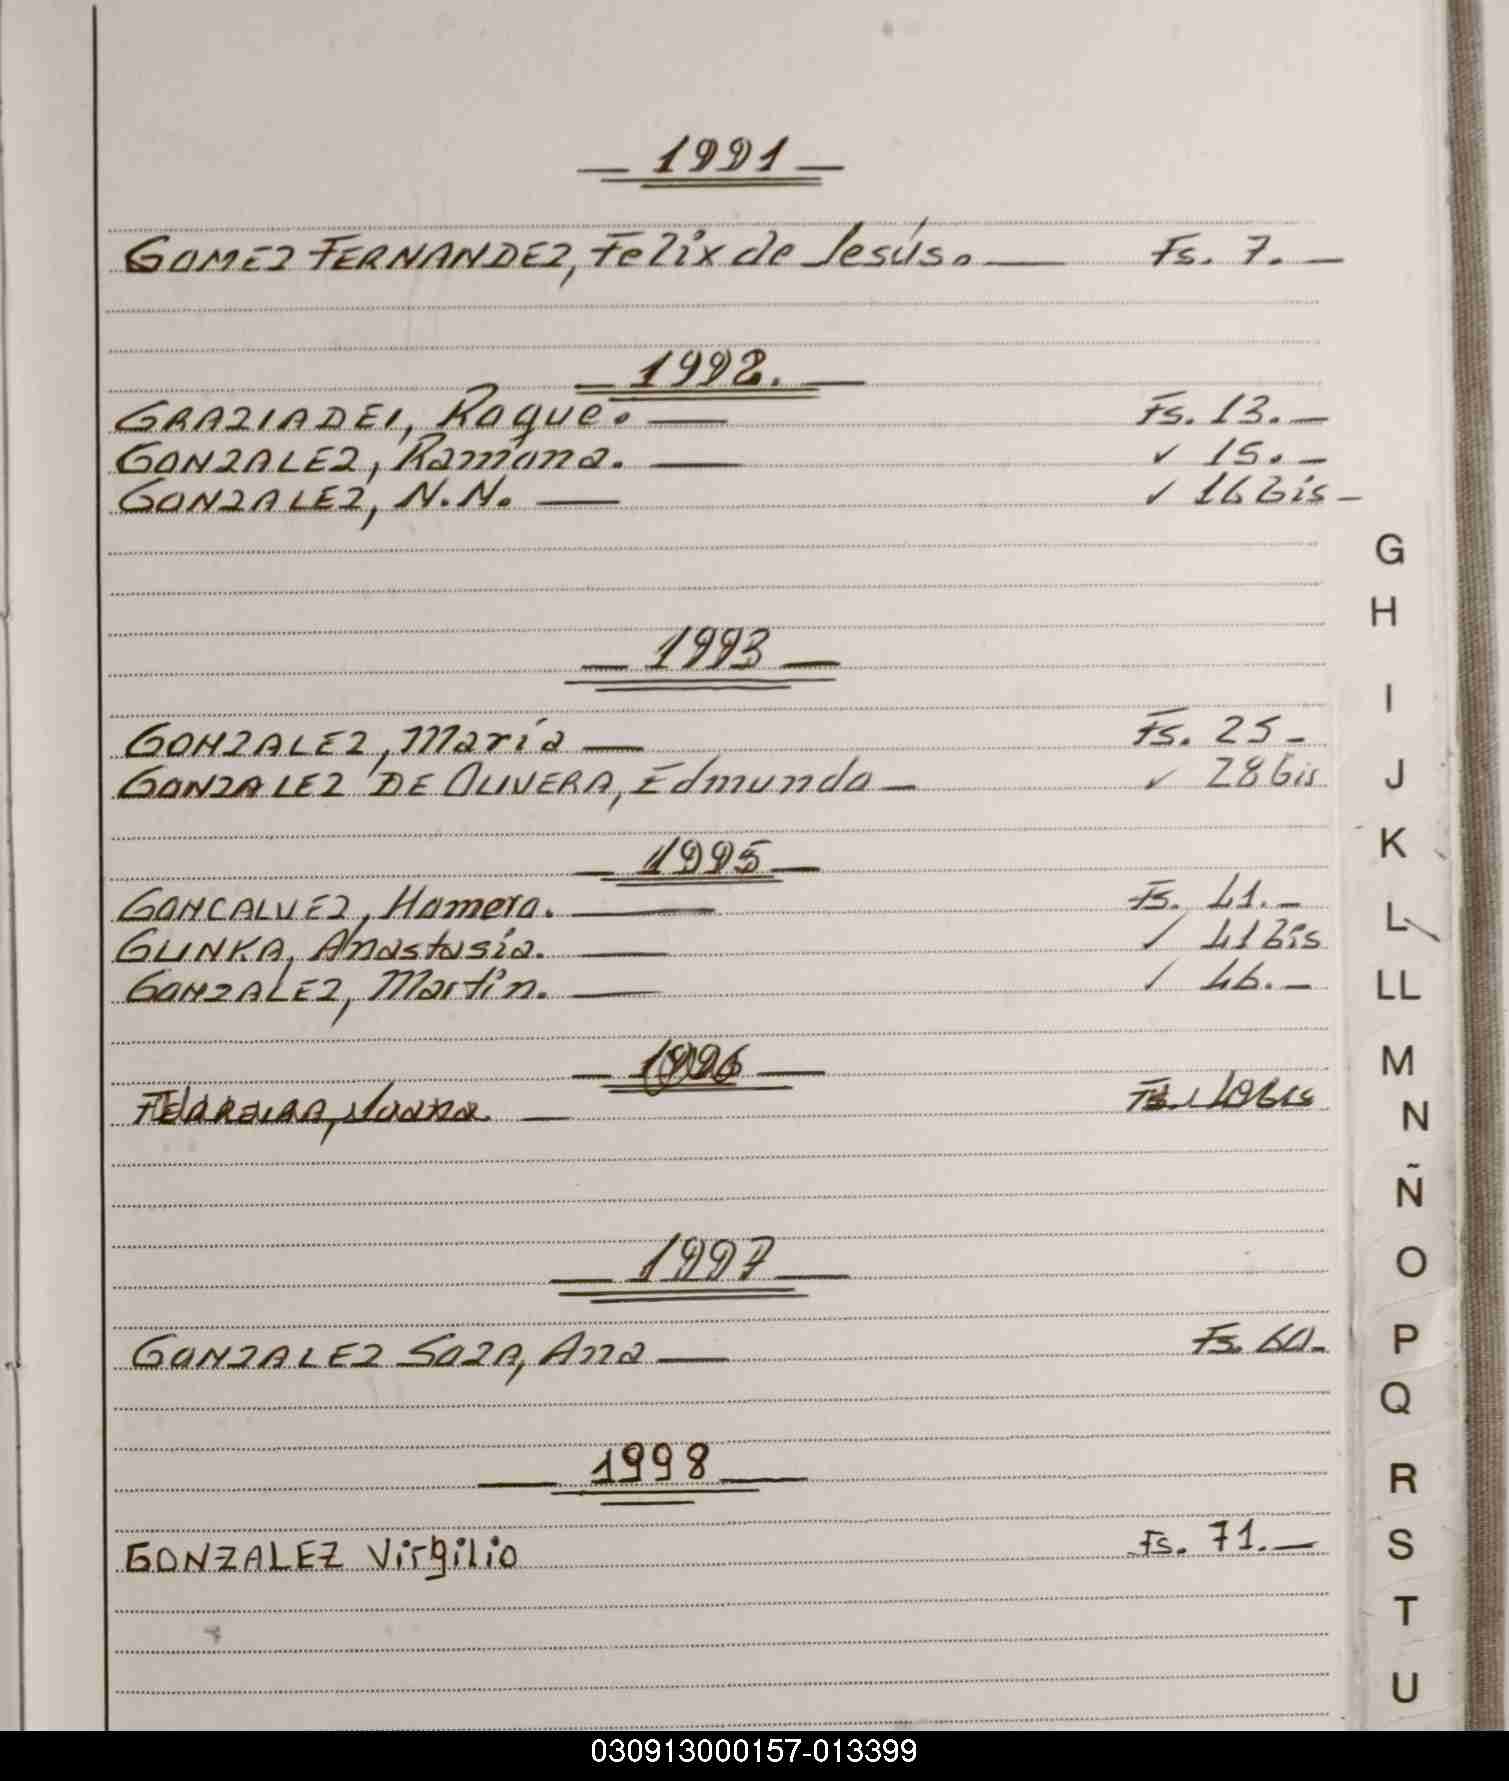 — 1991 —
GOMEZ FERNANDEZ, Felix de Jesús. — Fs. 7. —
— 1992. —
GRAZIADEI, Roque. — Fs. 13. —
GONZALEZ, Ramona. — ✓ 15. —
GONZALEZ, N.N. — ✓ 16 bis —
— 1993 —
GONZALEZ, María — Fs. 25 —
GONZALEZ DE OLIVERA, Edmundo — ✓ 28 bis
— 1995 —
GONCALVEZ, Homero. — Fs. 41. —
GLINKA, Anastasia. — / 41 bis
GONZALEZ, Martin. — / 46. —
— 1996 —
FERREIRA, — Fs. 49 bis
— 1997 —
GONZALEZ SOZA, Ana — Fs. 60. —
— 1998 —
GONZALEZ Virgilio Fs. 71. —
G
H
I
J
K
L
LL
M
N
Ñ
O
P
Q
R
S
T
U
030913000157-013399